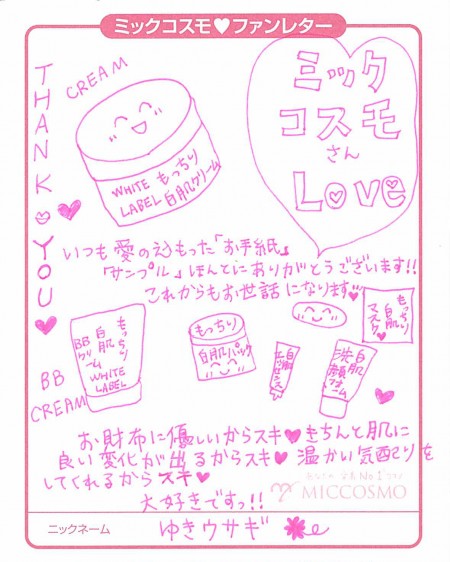 ミックコスモ♥ファンレター
THANK YOU
CREAM
WHITE もっちり
LABEL 白肌クリーム
ミック
コスモ
さん
Love
いつも愛のこもった「お手紙」
「サンプル」ほんとにありがとうございます!!
これからもお世話になります
もっちり
白肌
BBクリーム
WHITE
LABEL
BB
CREAM
もっちり
白肌パック
白肌
エッセンス
白肌
洗顔フォーム
もっちり
白肌
マスク
お財布に優しいからスキ♥きちんと肌に
良い変化が出るからスキ♥温かい気配りを
してくれるからスキ♥
大好きですっ!!
MICCOSMO
ニックネーム
ゆきウサギ